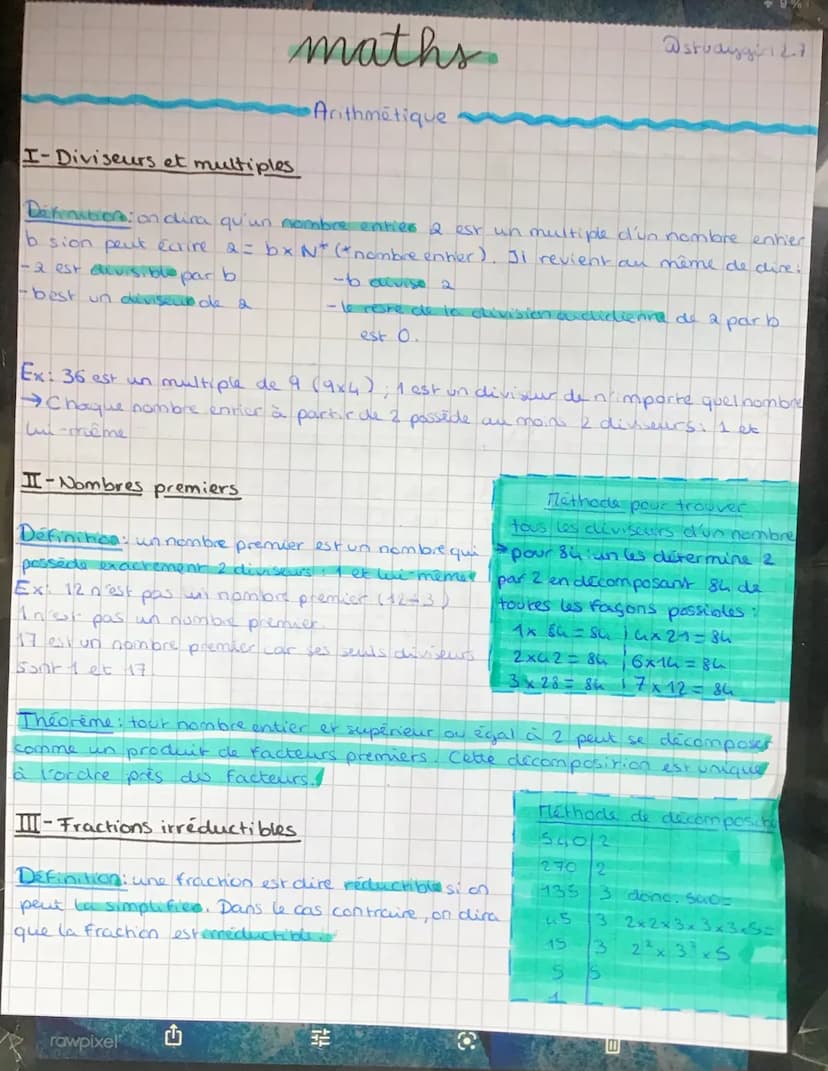 maths
@studygirl27
Arithmétique
I- Diviseurs et multiples
Définition: on dira qu'un nombre entier a est un multiple d'un nombre entier
b si on peut écrire a = b x N* (*nombre entier). Il revient au même de dire:
-a est divisible par b
-b divise a
-b est un diviseur de a
-le reste de la division euclidienne de a par b
est 0.
Ex: 36 est un multiple de 9 (9x4); 1 est un diviseur de n'importe quel nombre
→ Chaque nombre entier à partir de 2 possède au moins 2 diviseurs: 1 et
lui-même
II- Nombres premiers
Définition: un nombre premier est un nombre qui
possède exactement 2 diviseurs: 1 et lui-même
Ex: 12 n'est pas un nombre premier (12÷3)
1 n'est pas un nombre premier.
17 est un nombre premier car ses seuls diviseurs
sont 1 et 17
Méthode pour trouver
tous les diviseurs d'un nombre
→ pour 84: on les détermine 2
par 2 en décomposant 84 de
toutes les façons possibles:
1x 84 = 84 | 4x21 = 84
2x42 = 84 | 6x14 = 84
3x28 = 84 | 7x12 = 84
Théorème: tout nombre entier et supérieur ou égal à 2 peut se décomposer
comme un produit de facteurs premiers. Cette décomposition est unique
à l'ordre près des facteurs.
III- Fractions irréductibles
Définition: une fraction est dire réductible si on
peut la simplifier. Dans le cas contraire, on dira
que la fraction est irréductible.
Méthode de
540 | 2
270 | 2
135 | 3 donc: 540=
45 | 3 2x2x3x3x3x5=
15 | 3 2² x 3³ x 5
5 | 5
1
rawpixel